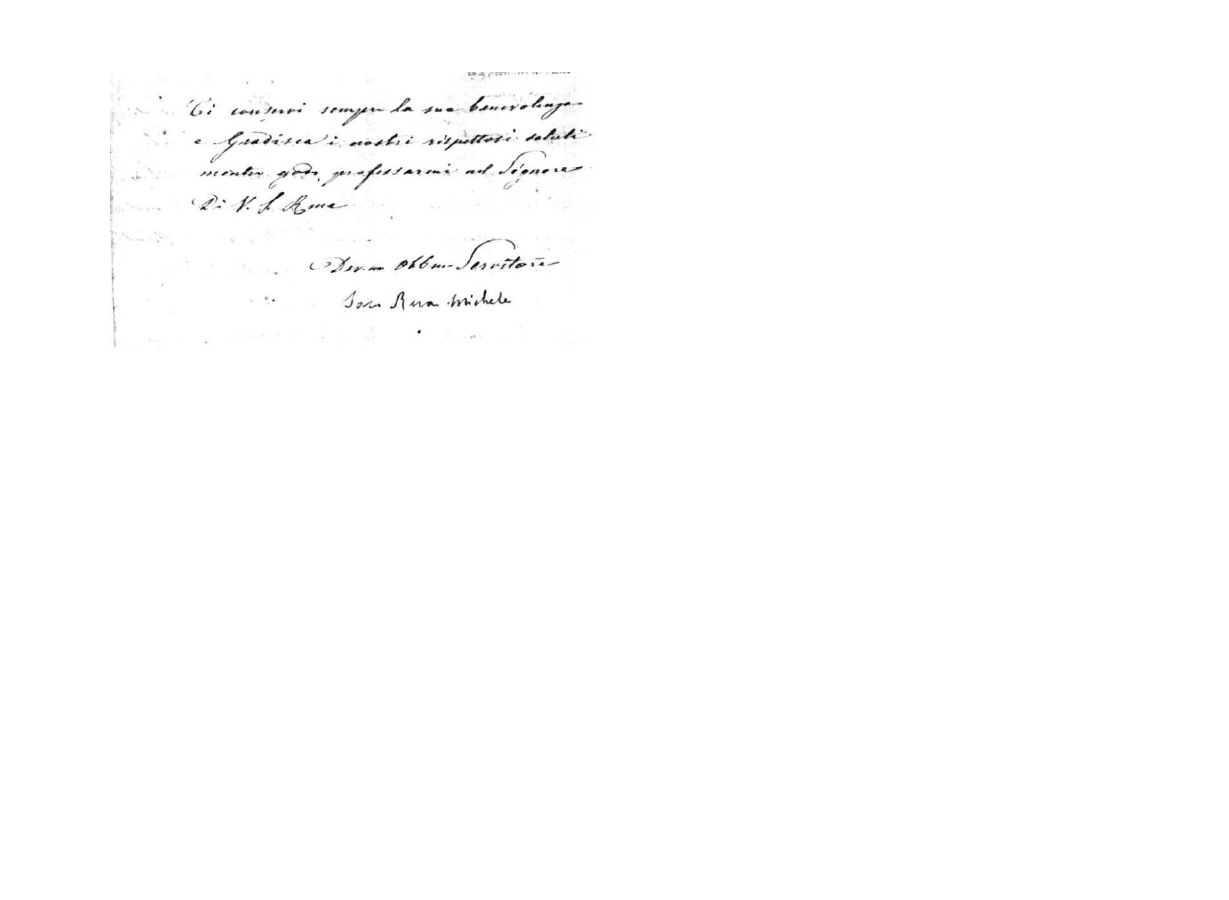 Ci conservi sempre la sua benevolenza
e Gradisca i nostri rispettosi saluti
mentre godo professarmi nel Signore
Di V. S. Rma
Dev.mo Obbmo Servitore
Sac. Rua Michele